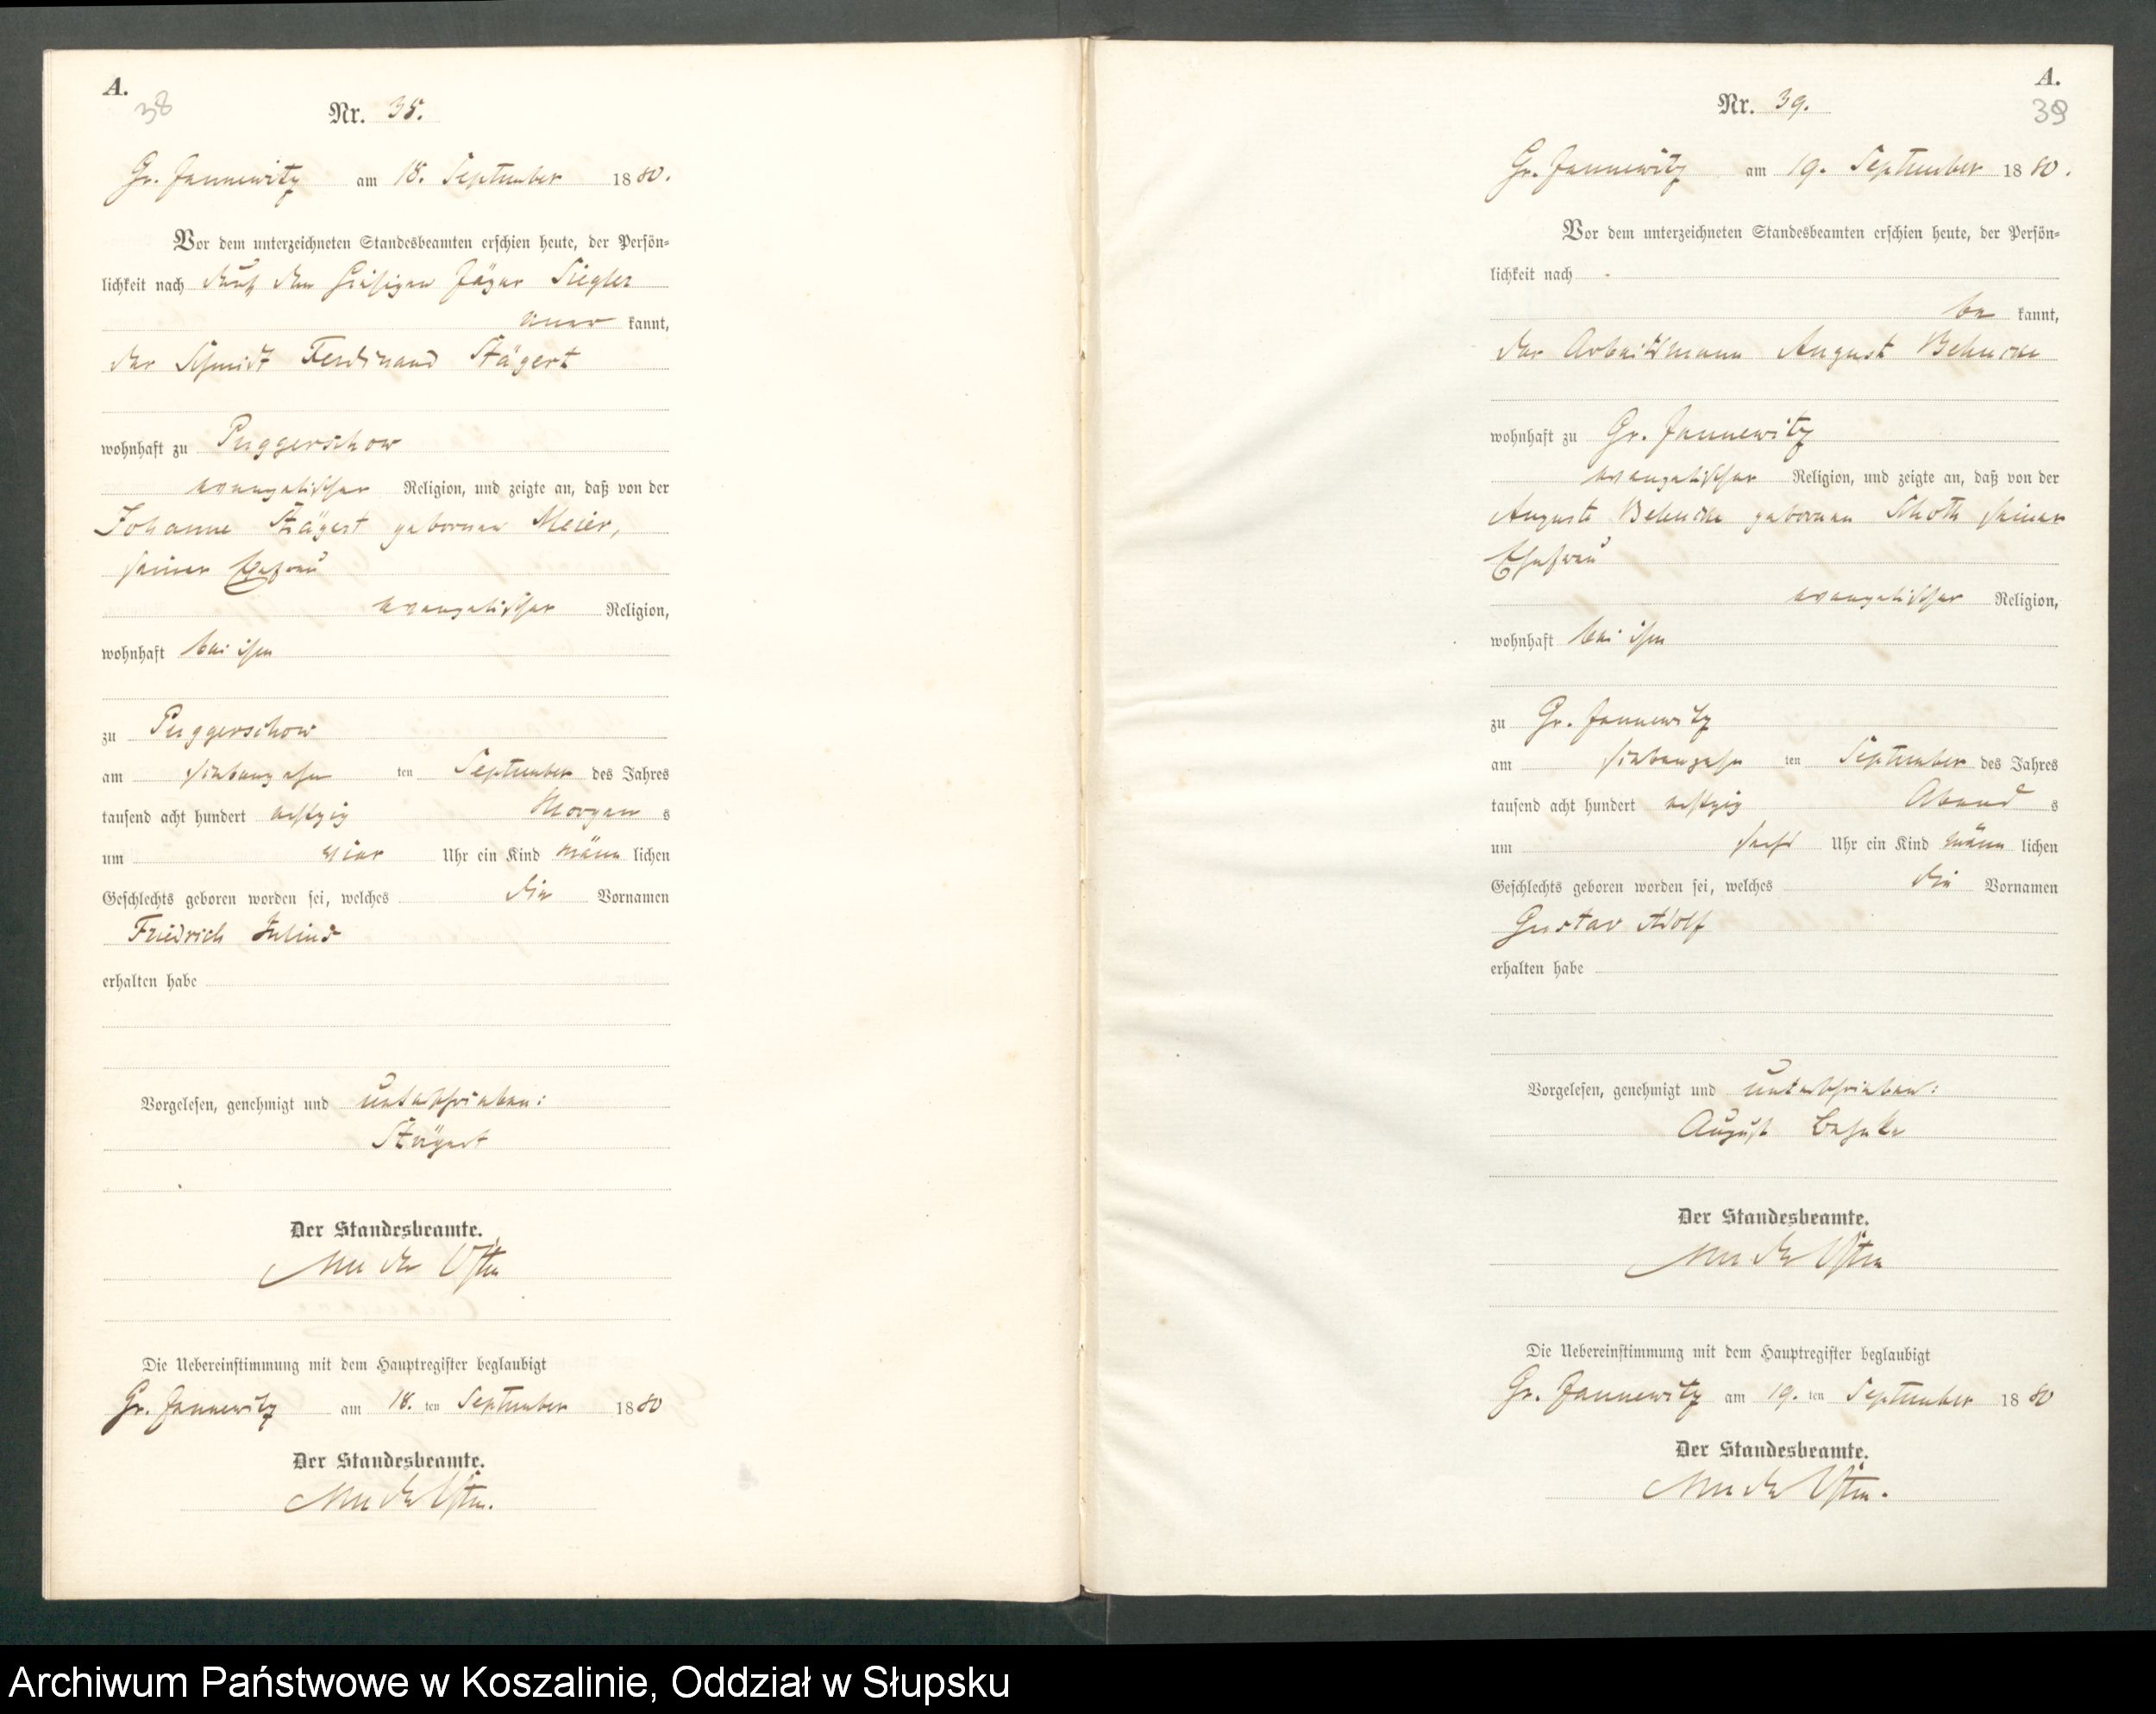 A.
38
Nr. 38.
Gr. Jannewitz am 18. September 1880.
Vor dem unterzeichneten Standesbeamten erschien heute, der Persön-
lichkeit nach durch den hiesigen Jäger Siegler
aner kannt,
der Schmidt Ferdinand Stägert
wohnhaft zu Puggerschow
evangelischer Religion, und zeigte an, daß von der
Johanne Stägert geborenen Meier,
seiner Ehefrau
evangelischer Religion,
wohnhaft bei ihm
zu Puggerschow
am siebenzehn ten September des Jahres
tausend acht hundert achtzig Morgen s
um vier Uhr ein Kind männ lichen
Geschlechts geboren worden sei, welches die Vornamen
Friedrich Julius
erhalten habe
Vorgelesen, genehmigt und unterschrieben:
Stägert
Der Standesbeamte.
von der Osten
Die Uebereinstimmung mit dem Hauptregister beglaubigt
Gr. Jannewitz am 18. ten September 1880
Der Standesbeamte.
von der Osten.
A.
39
Nr. 39.
Gr. Jannewitz am 19. September 1880.
Vor dem unterzeichneten Standesbeamten erschien heute, der Persön-
lichkeit nach
be kannt,
der Arbeitsmann August Behncke
wohnhaft zu Gr. Jannewitz
evangelischer Religion, und zeigte an, daß von der
Auguste Behncke geborenen Schoth seiner
Ehefrau
evangelischer Religion,
wohnhaft bei ihm
zu Gr. Jannewitz
am siebenzehn ten September des Jahres
tausend acht hundert achtzig Abend s
um sechs Uhr ein Kind männ lichen
Geschlechts geboren worden sei, welches die Vornamen
Gustav Adolf
erhalten habe
Vorgelesen, genehmigt und unterschrieben:
August Behnke
Der Standesbeamte.
von der Osten
Die Uebereinstimmung mit dem Hauptregister beglaubigt
Gr. Jannewitz am 19. ten September 1880
Der Standesbeamte.
von der Osten.
Archiwum Państwowe w Koszalinie, Oddział w Słupsku